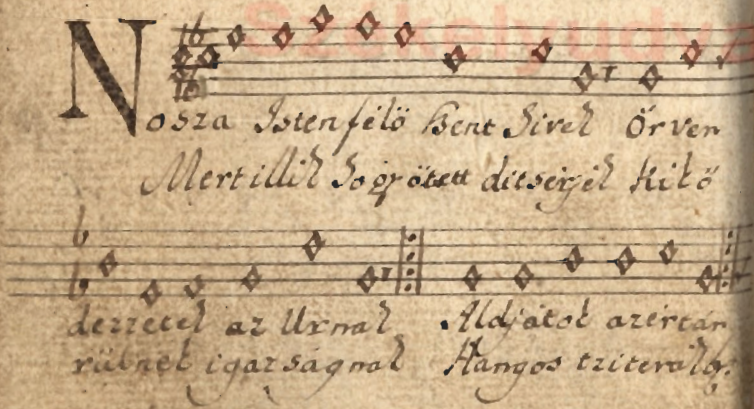 Székelyudva
Nosza Istenfélö Szent hivek Örven
Mert illik hogy ötett ditsérjék kikö
dezzetek az Urnak Áldjátok azértán
rülnek igazságnak Hangos tziterák